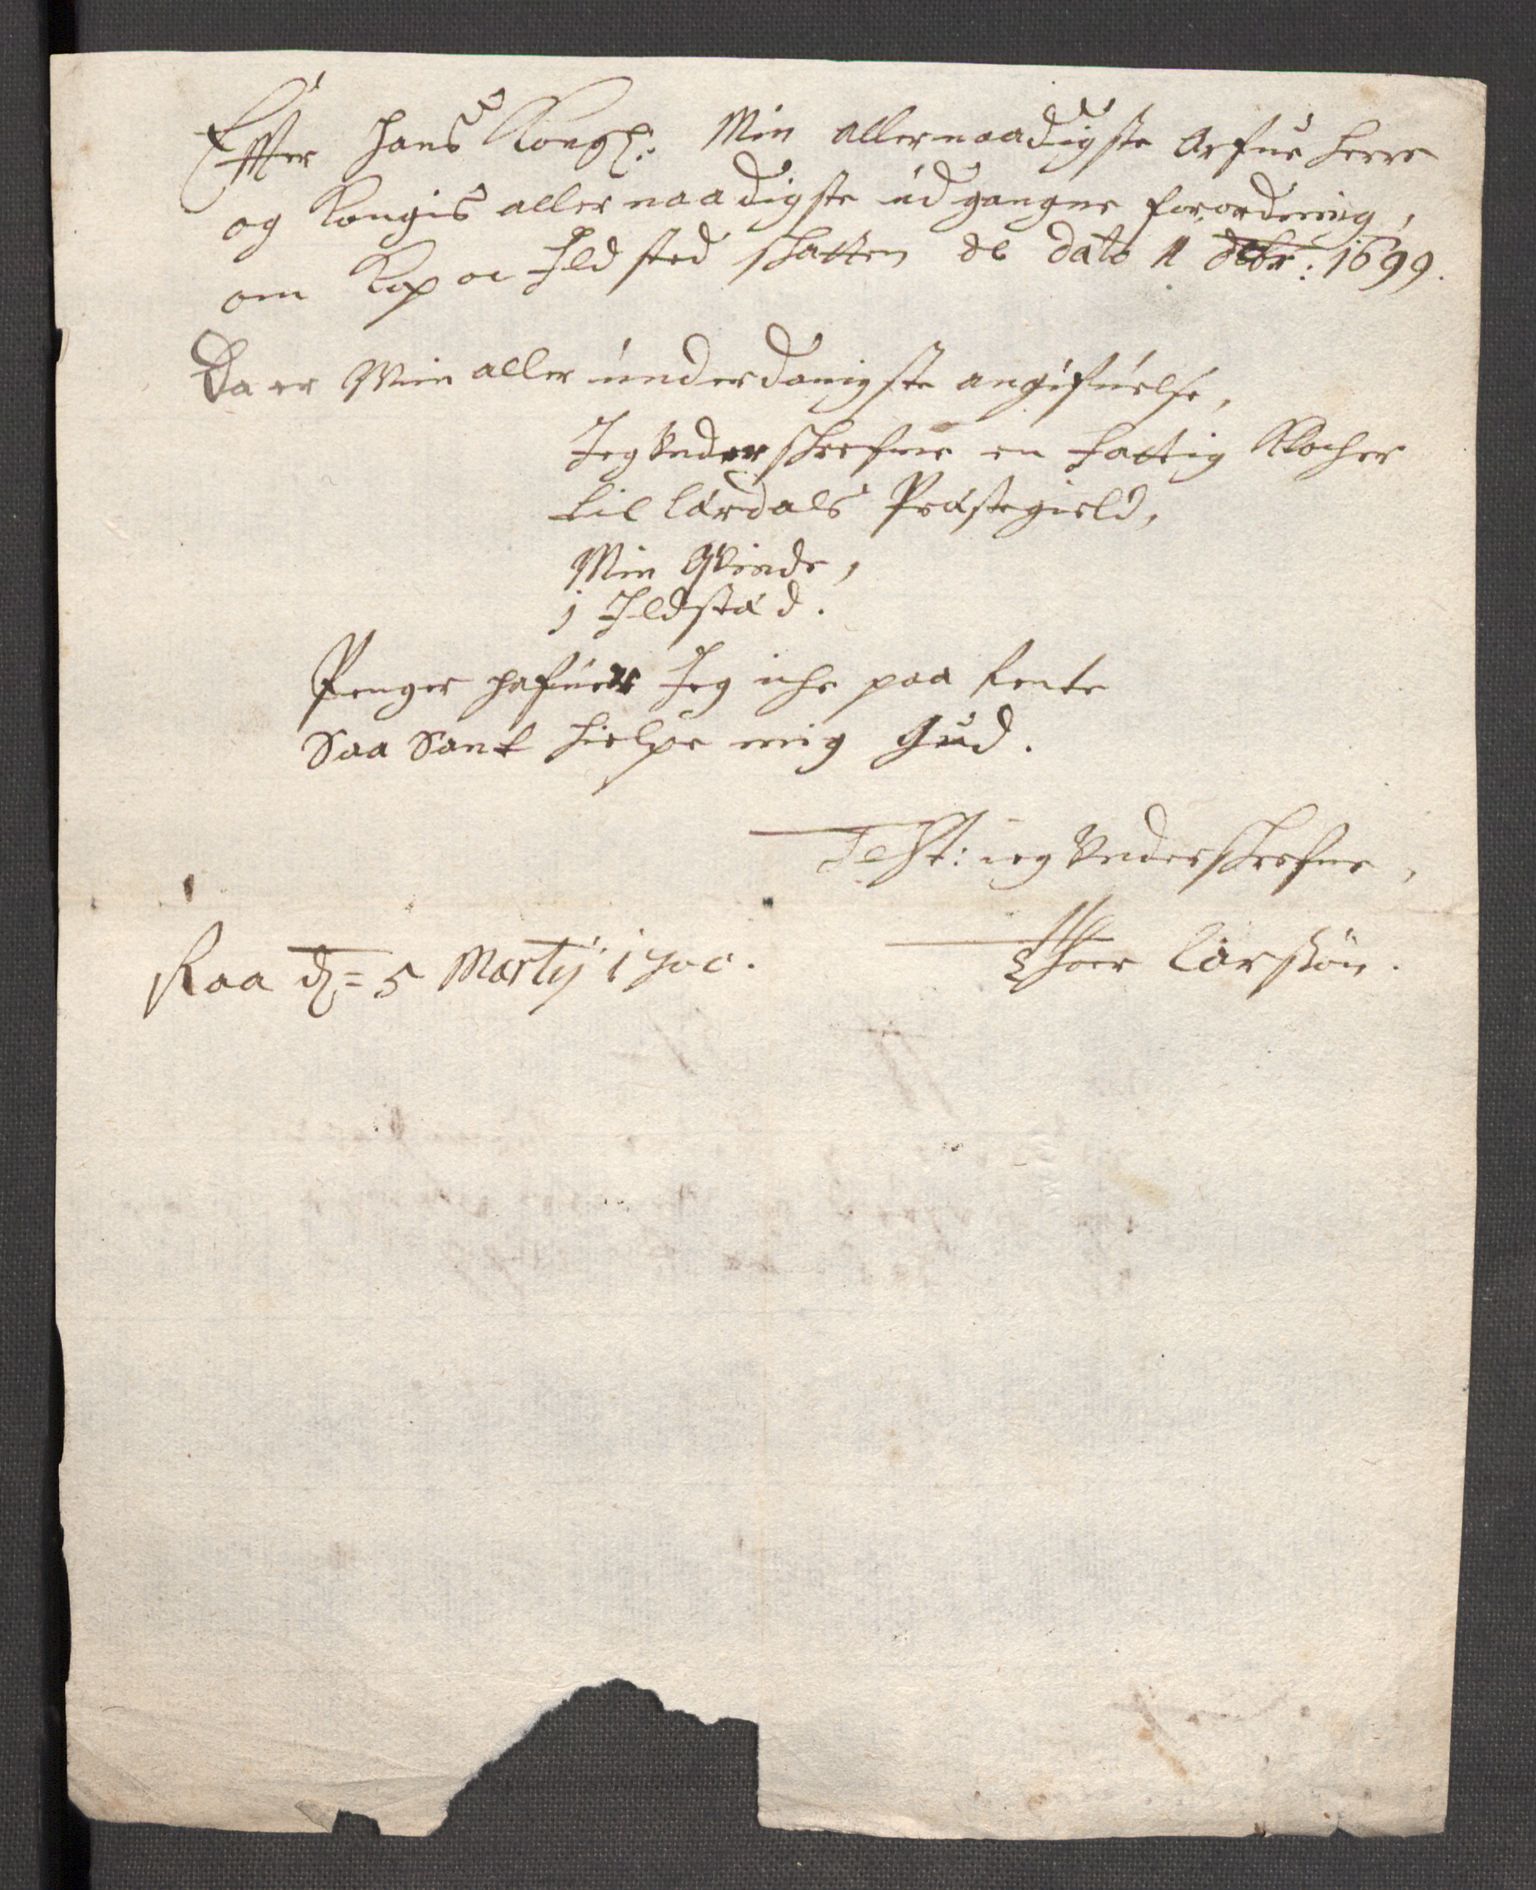 Effter Hans Kongl: Min allernaadigste Arfue Herre
og Kongis aller naadigste udgangne forordning,
om Kop oc Ildsted skatten de dato 11 decbr: 1699.
Da er Min aller underdanigste angifuelse,
Jeg Underskrefne en fattig Klocher
til Lærdals Præstegield,
Min Qvinde,
1 Ildstæd.
Penger hafuer Jeg iche paa Rente
Saa Sant hielpe mig Gud.
Test: ieg Underskrefne,
Raa d= 5 Martij 1700.
Larssøn.